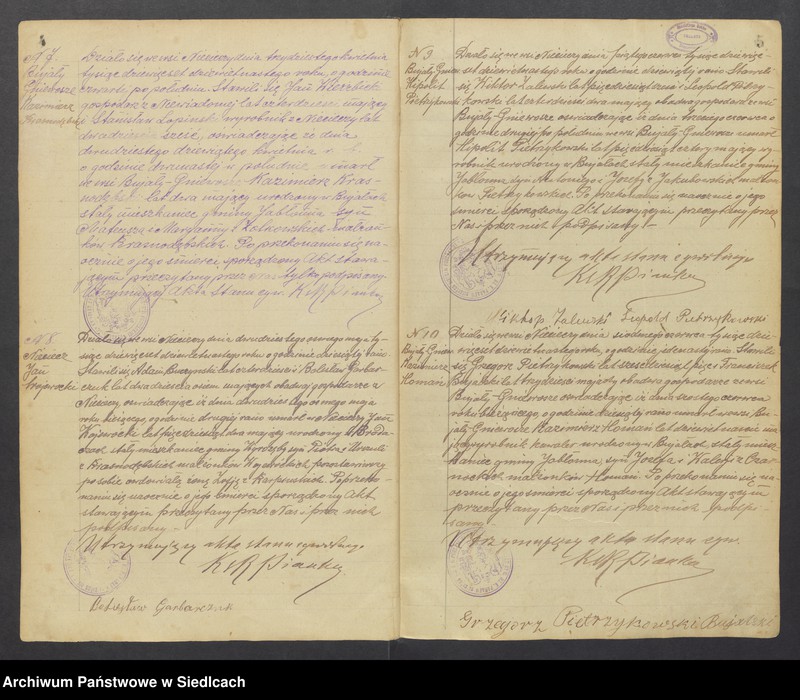 N 7
Bujały
Gniewosze
Kazimierz
Krasnodębski
Działo się we wsi Nieciecz dnia trzydziestego kwietnia
tysiąc dziewięćset dziewiętnastego roku, o godzinie
czwartej po południu. Stawili się Jan Wierzbicki
gospodarz z Niewiadomej lat czterdzieści mający
i Stanisław Łopiński wyrobnik z Nieciecz lat
dwadzieścia sześć, oświadczając że dnia
dwudziestego dziewiątego kwietnia r. b.
o godzinie dwunastej w południe umarł
we wsi Bujały-Gniewosze Kazimierz Kras-
nodębski lat dwa mający urodzony w Bujałach
stały mieszkaniec gminy Jabłonna syn
Mateusza i Maryanny z małżon-
ków Krasnodębskich. Po przekonaniu się na-
ocznie o jego śmierci sporządzony Akt stawa-
jącym przeczytany przez nas tylko podpisany
Utrzymujący Akta Stanu cyw. KsRPianko
N 8
Nieciecz
Jan
Wojewódzki
Działo się we wsi Nieciecz dnia dwudziestego ósmego maja ty-
siąc dziewięćset dziewiętnastego roku o godzinie dziesiątej rano
Stawili się Adam lat czterdzieści i Bolesław Garbar-
czuk lat dwadzieścia osiem mających obadwaj gospodarze z
Nieciecz, oświadczając iż dnia dwudziestego ósmego maja
roku bieżącego, o godzinie drugiej rano umarł w Nieciecz Jan
lat pięćdziesiąt dwa mający urodzony w
stały mieszkaniec gminy syn Piotra i
z Krasnodębskich małżonków pozostawiwszy
po sobie owdowiałą żonę Zofję z Karpińskich. Po przeko-
naniu się naocznie o jego śmierci sporządzony Akt
stawającym przeczytany przez Nas i przez nich
podpisany.-
Utrzymujący akta stanu cywilnego
KsRPianko
Bolesław Garbarczuk
5
N 9
Bujały Gniew.
Hipolit
Pietrzykowski
Działo się we wsi Nieciecz dnia piątego czerwca tysiąc dziewię-
ćset dziewiętnastego roku o godzinie dziewiątej rano Stawili
się Wiktor Zalewski lat pięćdziesiąt i Leopold Pietrzy-
kowski lat czterdzieści dwa mający obadwaj gospodarze ze wsi
Bujały-Gniewosze oświadczając że dnia trzeciego czerwca o
godzinie drugiej po południu we wsi Bujały-Gniewosze umarł
Hipolit Pietrzykowski lat pięćdziesiąt cztery mający wy-
robnik urodzony w Bujałach stały mieszkaniec gminy
Jabłonna syn Antoniego i Józefy z Jakubowskich małżon-
ków Pietrzykowskich. Po przekonaniu się naocznie o jego
śmierci sporządzony Akt Stawającym przeczytany przez
Nas i przez nich podpisany.-
Utrzymujący akta stanu cywilnego
KsRPianko
Wiktor Zalewski Leopold Pietrzykowski
N 10
Bujały Gniew.
Kazimierz
Homan
Działo się we wsi Nieciecz dnia siódmego czerwca tysiąc dzie-
więćset dziewiętnastego roku, o godzinie jedenastej rano. Stawili
się Grzegorz Pietrzykowski lat sześćdziesiąt pięć i Franciszek
Bujalski lat trzydzieści mający obadwaj gospodarze ze wsi
Bujały-Gniewosze oświadczając iż dnia szóstego czerwca
roku bieżącego, o godzinie dziesiątej rano umarł we wsi Bu-
jały-Gniewosze Kazimierz Homan lat dziewiętnaście ma-
jący wyrobnik kawaler urodzony w Bujałach stały miesz-
kaniec gminy Jabłonna, syn Józefa i Walerji z Czar-
nockich małżonków Homan. Po przekonaniu się na-
ocznie o jego śmierci sporządzony Akt stawającym
przeczytany przez Nas i przez nich podpi-
sany.-
Utrzymujący akta stanu cyw.
KsRPianko
Grzegorz Pietrzykowski Bujalski
Archiwum Państwowe w Siedlcach